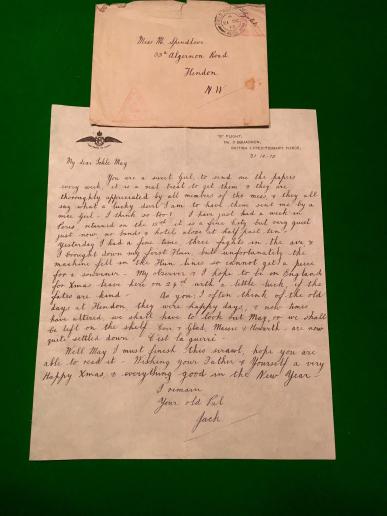 Miss M. Spindlow
Algernon Road
Hendon
N.W
"B" FLIGHT,
No. SQUADRON,
BRITISH EXPEDITIONARY FORCE,
My dear Little May
You are a sweet Girl, to send me the papers
every week, it is a real treat to get them & they are
thoroughly appreciated by all members of the mess, & they all
say what a lucky devil I am to have them sent me by a
nice Girl – I think so too! I have just had a week in
Paris returned on the it is a fine but very quiet
just now no bands & hotels close at half past ten!
Yesterday I had a fine time three fights in the air &
I brought down my first Hun but unfortunately the
machine fell in the Hun lines so cannot get a piece
for a souvenir – My observer & I hope to be in England
for Xmas leave here on 24th with a little luck, if the
fates are kind As you, I often think of the old
days at Hendon they were happy days, & now times
have altered, we shall have to look out May, or we shall
be left on the shelf & Glad, & Howarth are now
quite settled down! C'est la guerre
Well May I must finish this scrawl, hope you are
able to read it – Wishing your Father & Yourself a very
Happy Xmas & everything good in the New Year
I remain
Your old Pal
Jack